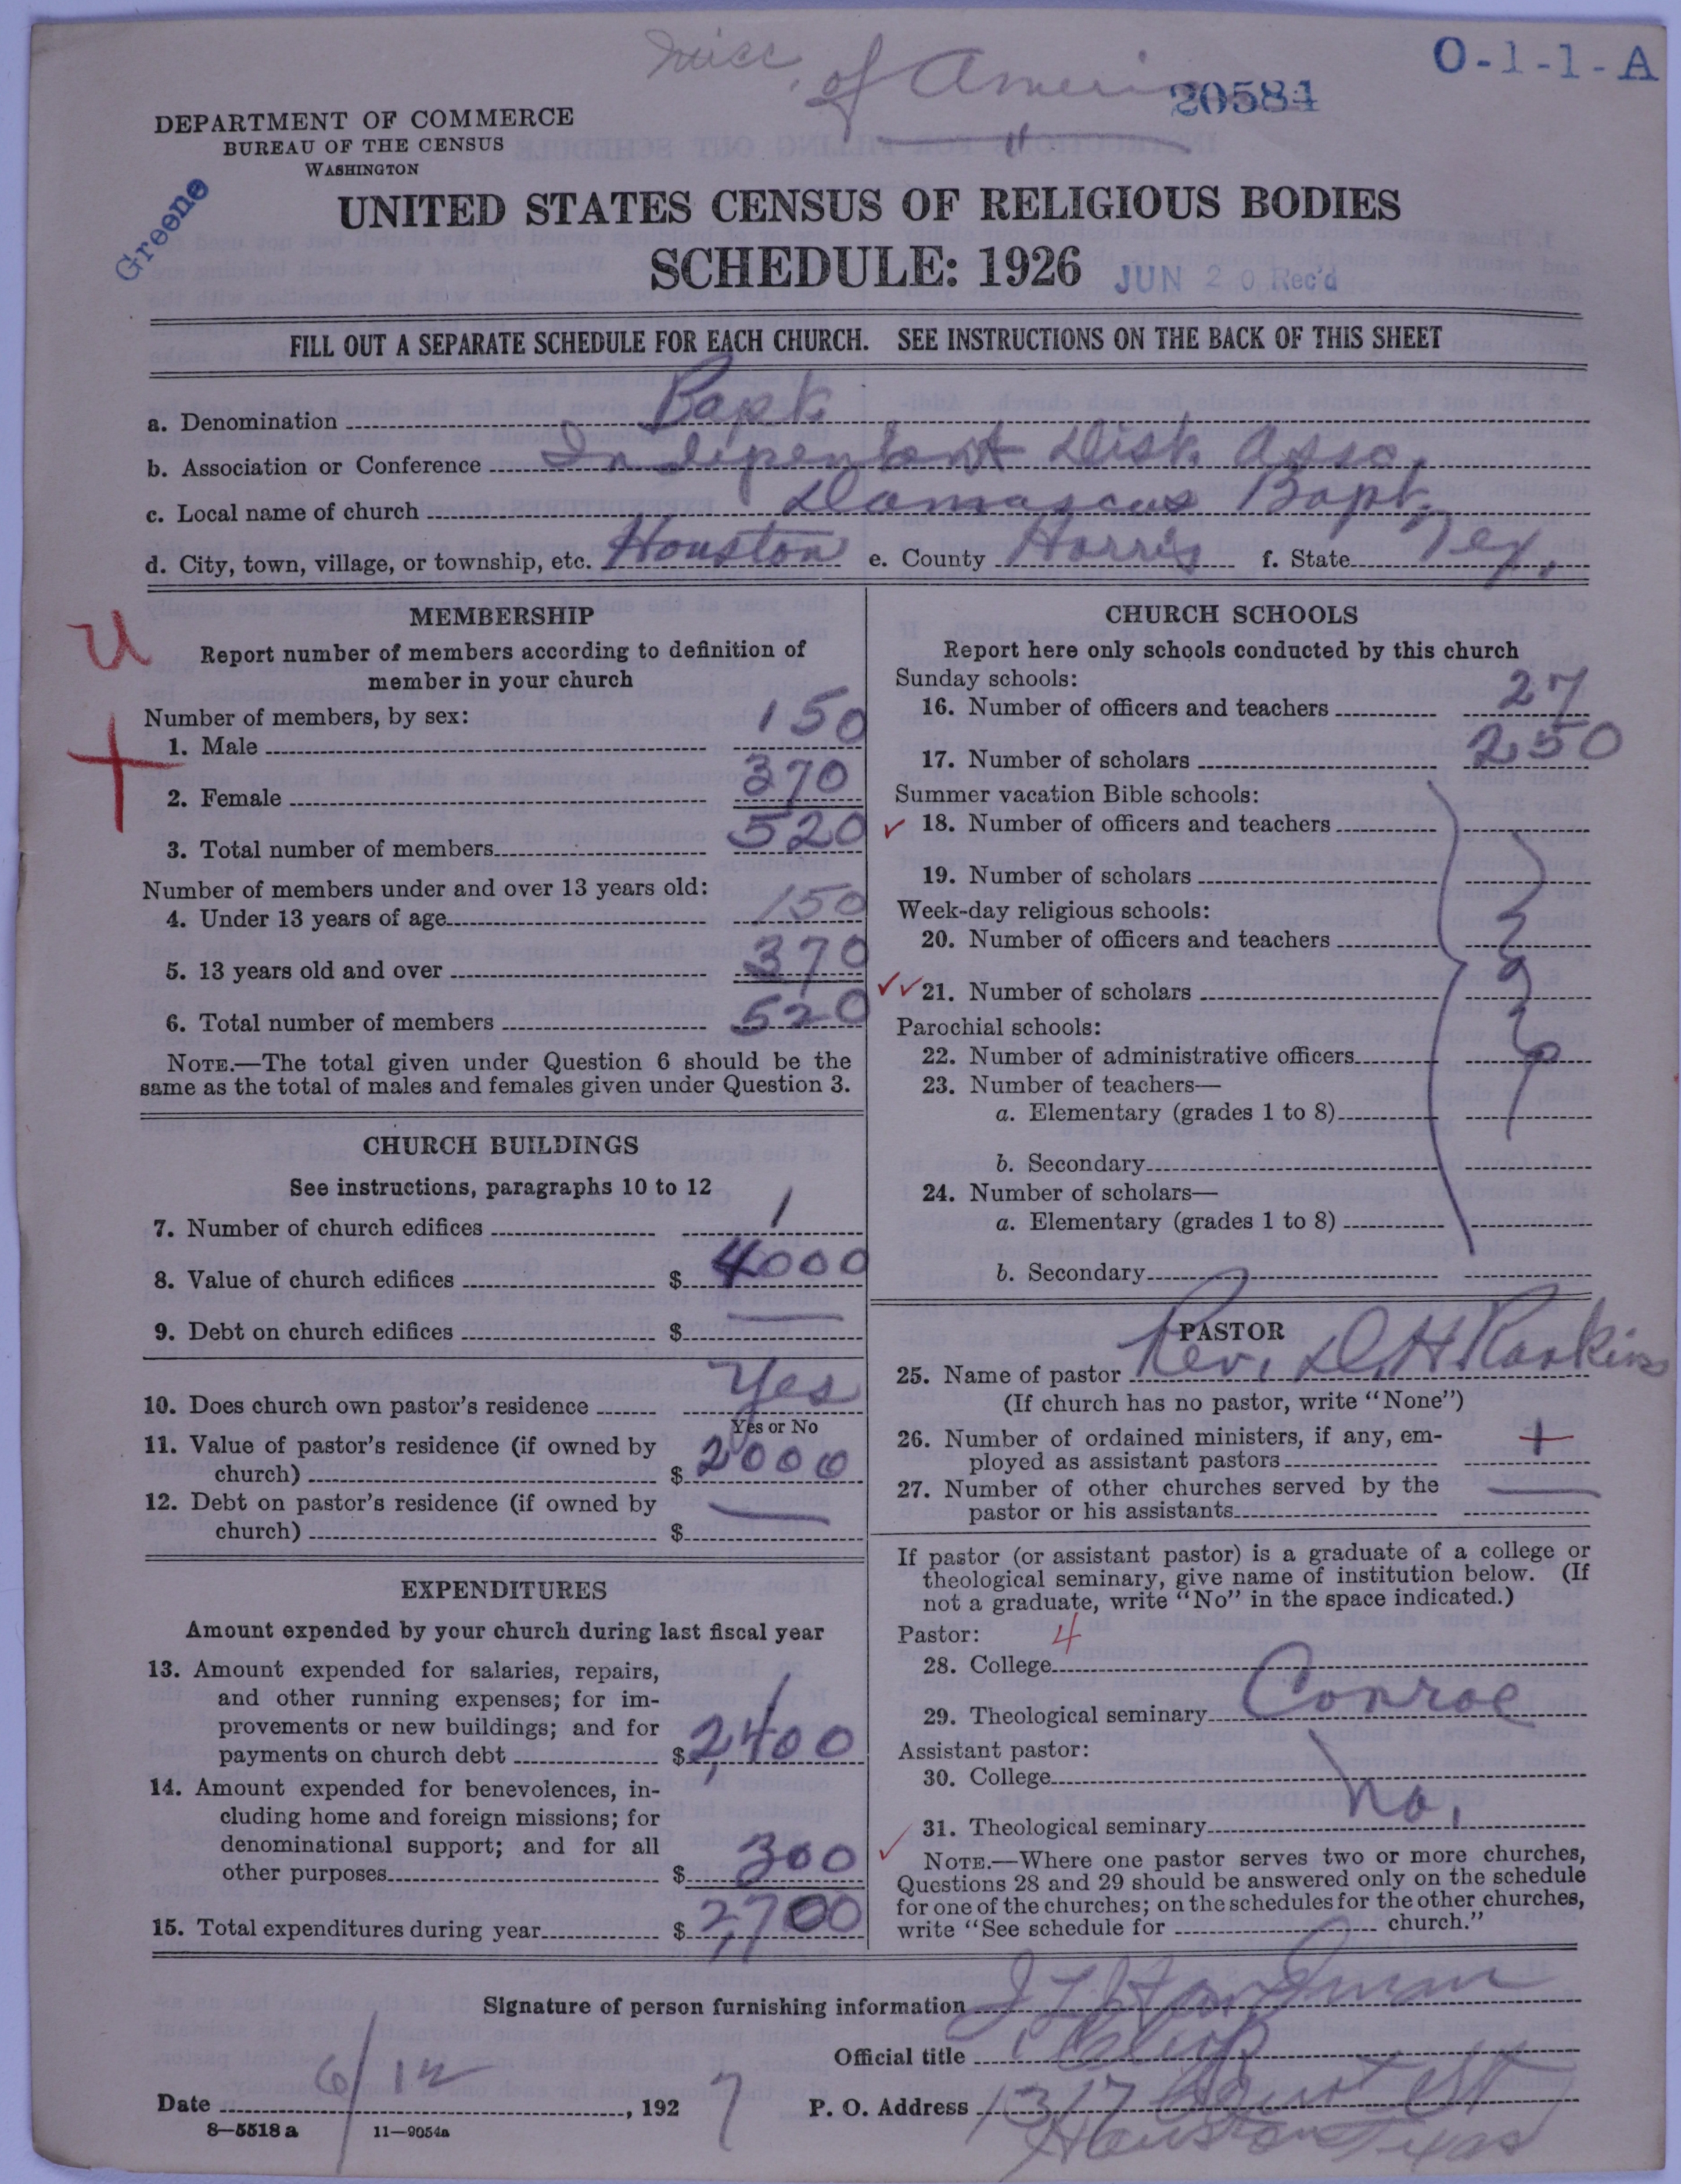 Misc. of Ameri
20584
O-1-1-A
DEPARTMENT OF COMMERCE
BUREAU OF THE CENSUS
WASHINGTON
Greene
UNITED STATES CENSUS OF RELIGIOUS BODIES
SCHEDULE: 1926
JUN 20 Rec'd
FILL OUT A SEPARATE SCHEDULE FOR EACH CHURCH. SEE INSTRUCTIONS ON THE BACK OF THIS SHEET
a. Denomination Bapt
b. Association or Conference Indipendent Dist. Asso.
c. Local name of church Damascus Bapt.
d. City, town, village, or township, etc. Houston e. County Harris f. State Tex.
U
MEMBERSHIP
Report number of members according to definition of
member in your church
Number of members, by sex:
1. Male 150
2. Female 370
3. Total number of members 520
Number of members under and over 13 years old:
4. Under 13 years of age 150
5. 13 years old and over 370
6. Total number of members 520
NOTE.—The total given under Question 6 should be the
same as the total of males and females given under Question 3.
CHURCH BUILDINGS
See instructions, paragraphs 10 to 12
7. Number of church edifices 1
8. Value of church edifices $ 4000
9. Debt on church edifices $
10. Does church own pastor's residence Yes
Yes or No
11. Value of pastor's residence (if owned by
church) $ 2000
12. Debt on pastor's residence (if owned by
church) $
EXPENDITURES
Amount expended by your church during last fiscal year
13. Amount expended for salaries, repairs,
and other running expenses; for im-
provements or new buildings; and for
payments on church debt $ 2,400
14. Amount expended for benevolences, in-
cluding home and foreign missions; for
denominational support; and for all
other purposes $ 300
15. Total expenditures during year $ 2,700
CHURCH SCHOOLS
Report here only schools conducted by this church
Sunday schools:
16. Number of officers and teachers 27
17. Number of scholars 250
Summer vacation Bible schools:
✓ 18. Number of officers and teachers
19. Number of scholars
Week-day religious schools:
20. Number of officers and teachers
✓✓ 21. Number of scholars
Parochial schools:
22. Number of administrative officers
23. Number of teachers—
a. Elementary (grades 1 to 8)
b. Secondary
24. Number of scholars—
a. Elementary (grades 1 to 8)
b. Secondary
PASTOR
25. Name of pastor Rev. D. H. Rankins
(If church has no pastor, write "None")
26. Number of ordained ministers, if any, em-
ployed as assistant pastors 1
27. Number of other churches served by the
pastor or his assistants
If pastor (or assistant pastor) is a graduate of a college or
theological seminary, give name of institution below. (If
not a graduate, write "No" in the space indicated.)
Pastor: 4
28. College
29. Theological seminary Conroe
Assistant pastor:
30. College
✓ 31. Theological seminary No.
NOTE.—Where one pastor serves two or more churches,
Questions 28 and 29 should be answered only on the schedule
for one of the churches; on the schedules for the other churches,
write "See schedule for church."
Signature of person furnishing information J L Hardman
Official title Clerk
Date 6/12, 1927 P. O. Address 1317 St
Houston Texas
8—5518 a 11—9054a